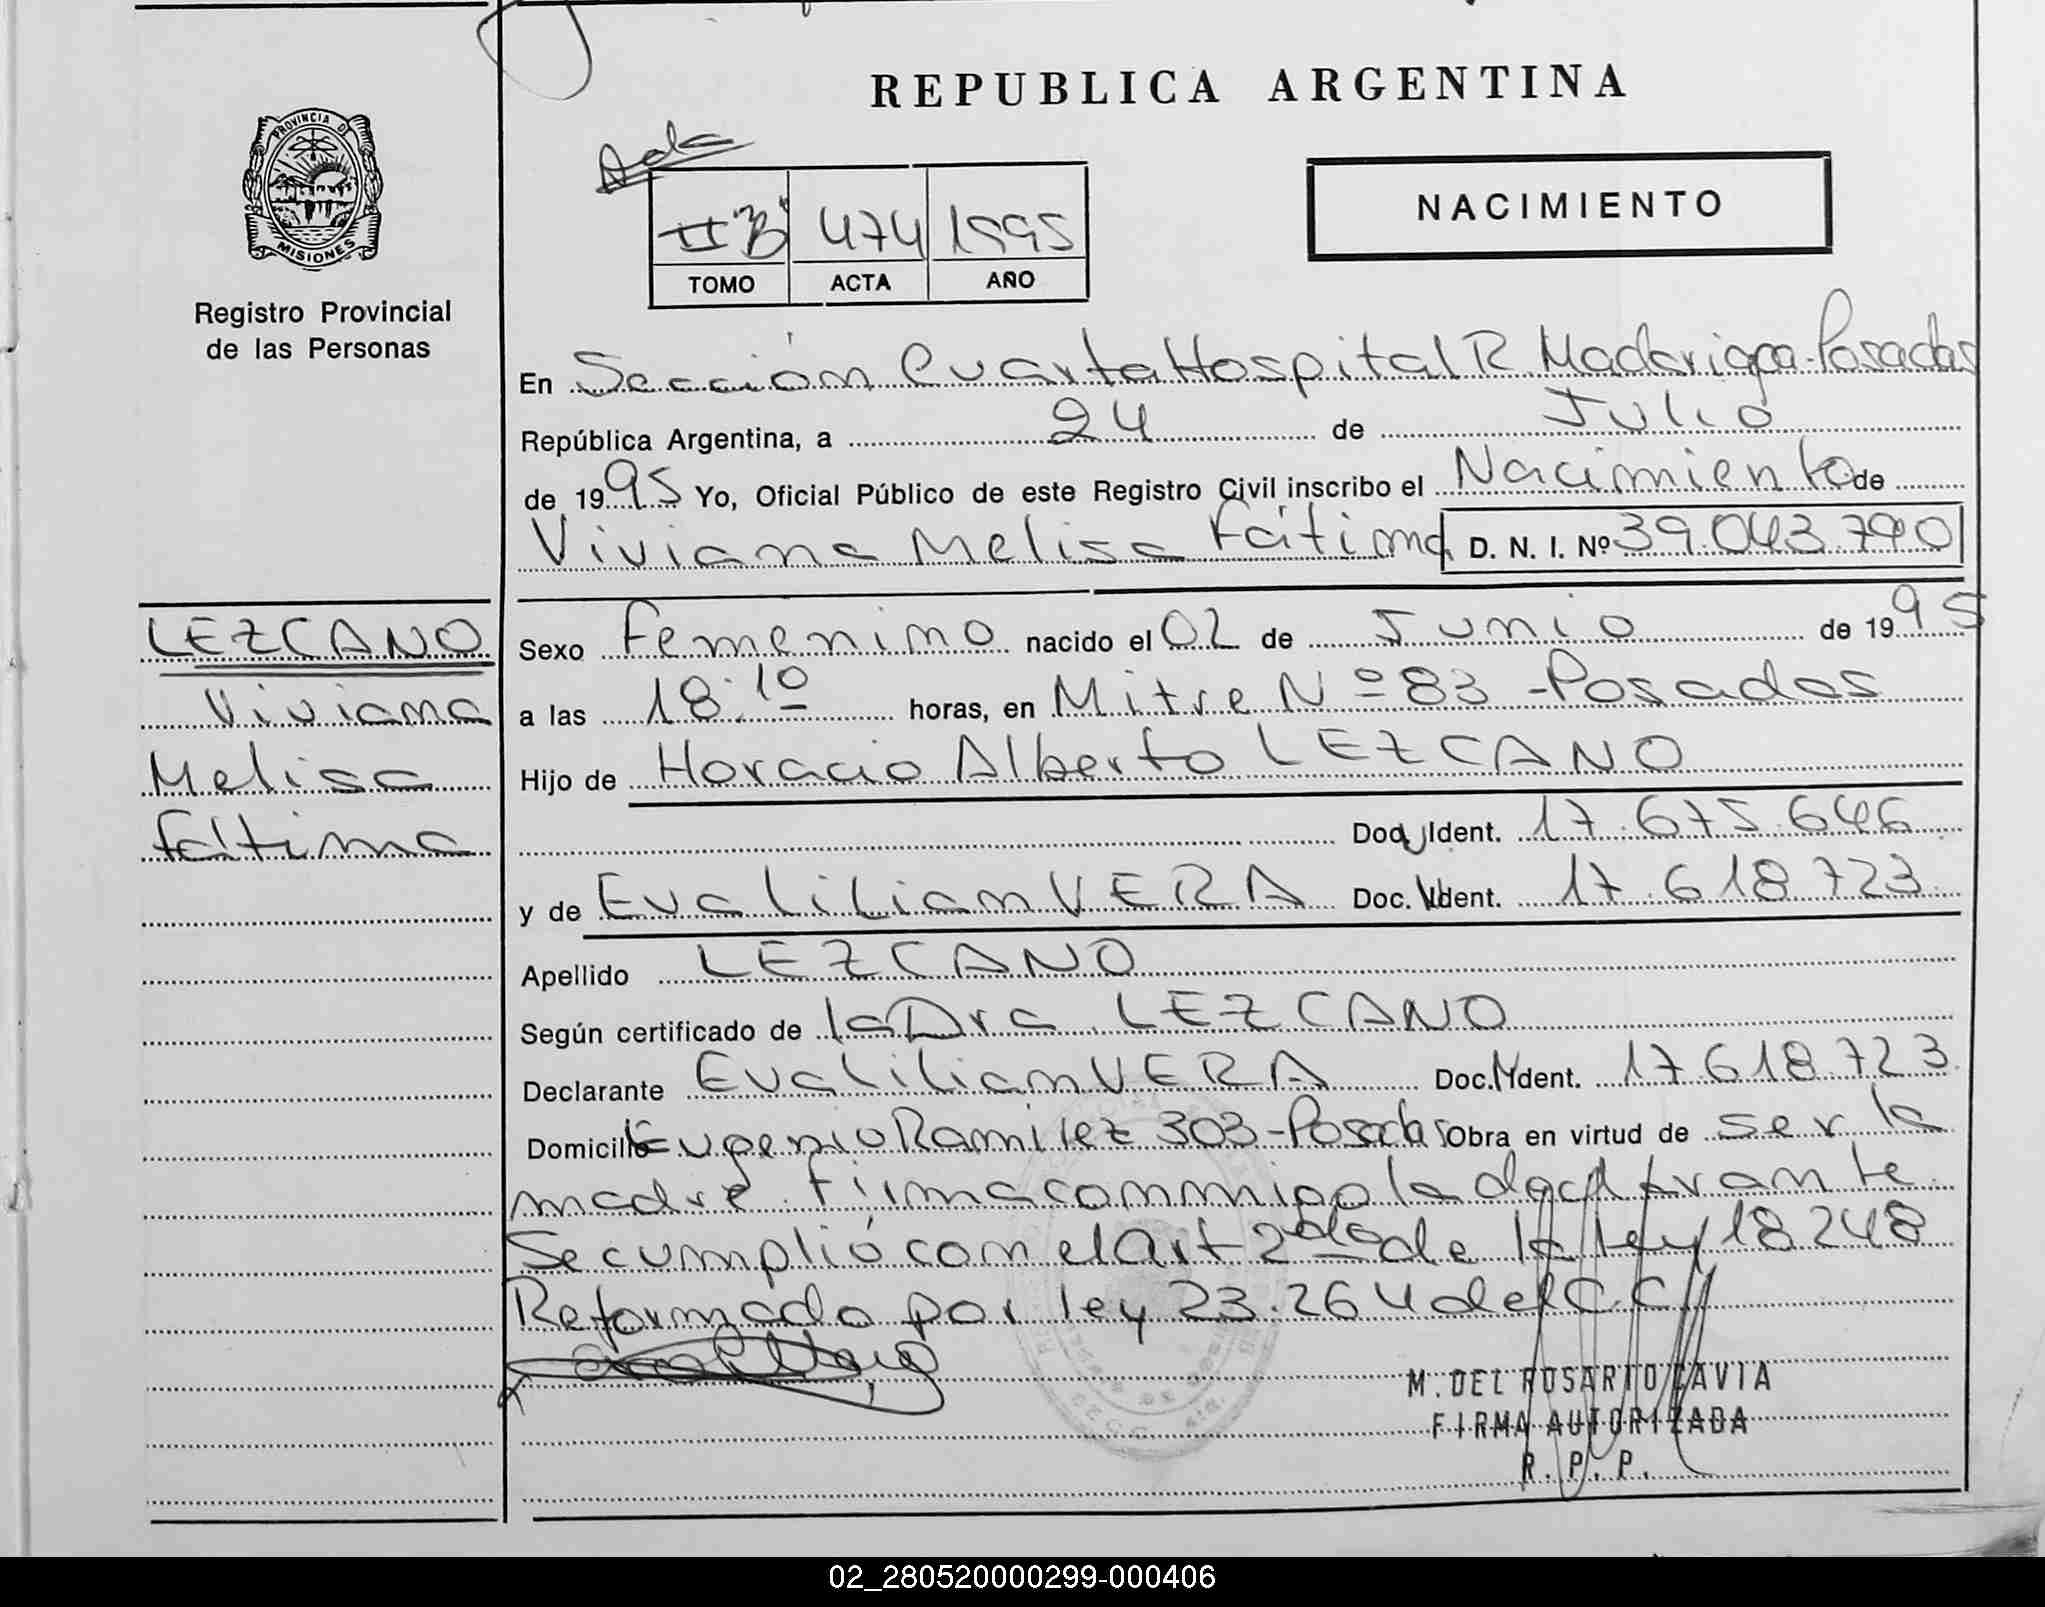 REPUBLICA ARGENTINA
PROVINCIA DE
MISIONES
Registro Provincial
de las Personas
NACIMIENTO
II "B" 474 1995
TOMO ACTA AÑO
En Sección Cuarta Hospital R Madariaga-Posadas
República Argentina, a 24 de Julio
de 1995 Yo, Oficial Público de este Registro Civil inscribo el Nacimiento de
Viviana Melisa Fátima D. N. I. Nº 39.043.790
LEZCANO
Viviana
Melisa
Fátima
Sexo Femenino nacido el 02 de Junio de 1995
a las 18:10 horas, en Mitre Nº 83 - Posadas
Hijo de Horacio Alberto LEZCANO
Doc. Ident. 17.675.646
y de Eva Lilian VERA Doc. Ident. 17.618.723
Apellido LEZCANO
Según certificado de la Dra LEZCANO
Declarante Eva Lilian VERA Doc. Ident. 17.618.723
Domicilio Eugenio Ramirez 303-Posadas Obra en virtud de ser la
madre. Firma conmigo la declarante
Se cumplió con el Art 2do de la ley 18248
Reformado por ley 23.264 del C.C
M. DEL ROSARIO ZAVIA
FIRMA AUTORIZADA
R. P. P.
02_280520000299-000406